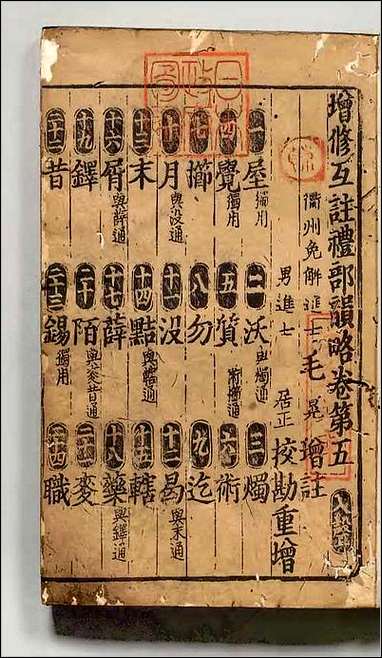 增修互註禮部韻略卷第五
衢州免解進士毛晃增註
男進士 居正挍勘重增
入聲
一屋獨用 二沃與燭通 三燭
四覺獨用 五質術櫛通 六術
七櫛 八勿 九迄
十月與没通 十一没 十二曷與末通
十三末 十四黠與轄通 十五轄
十六屑與薛通 十七薛 十八藥與鐸通
十九鐸 二十陌與麥昔通 二十一麥
二十二昔 二十三錫獨用 二十四職